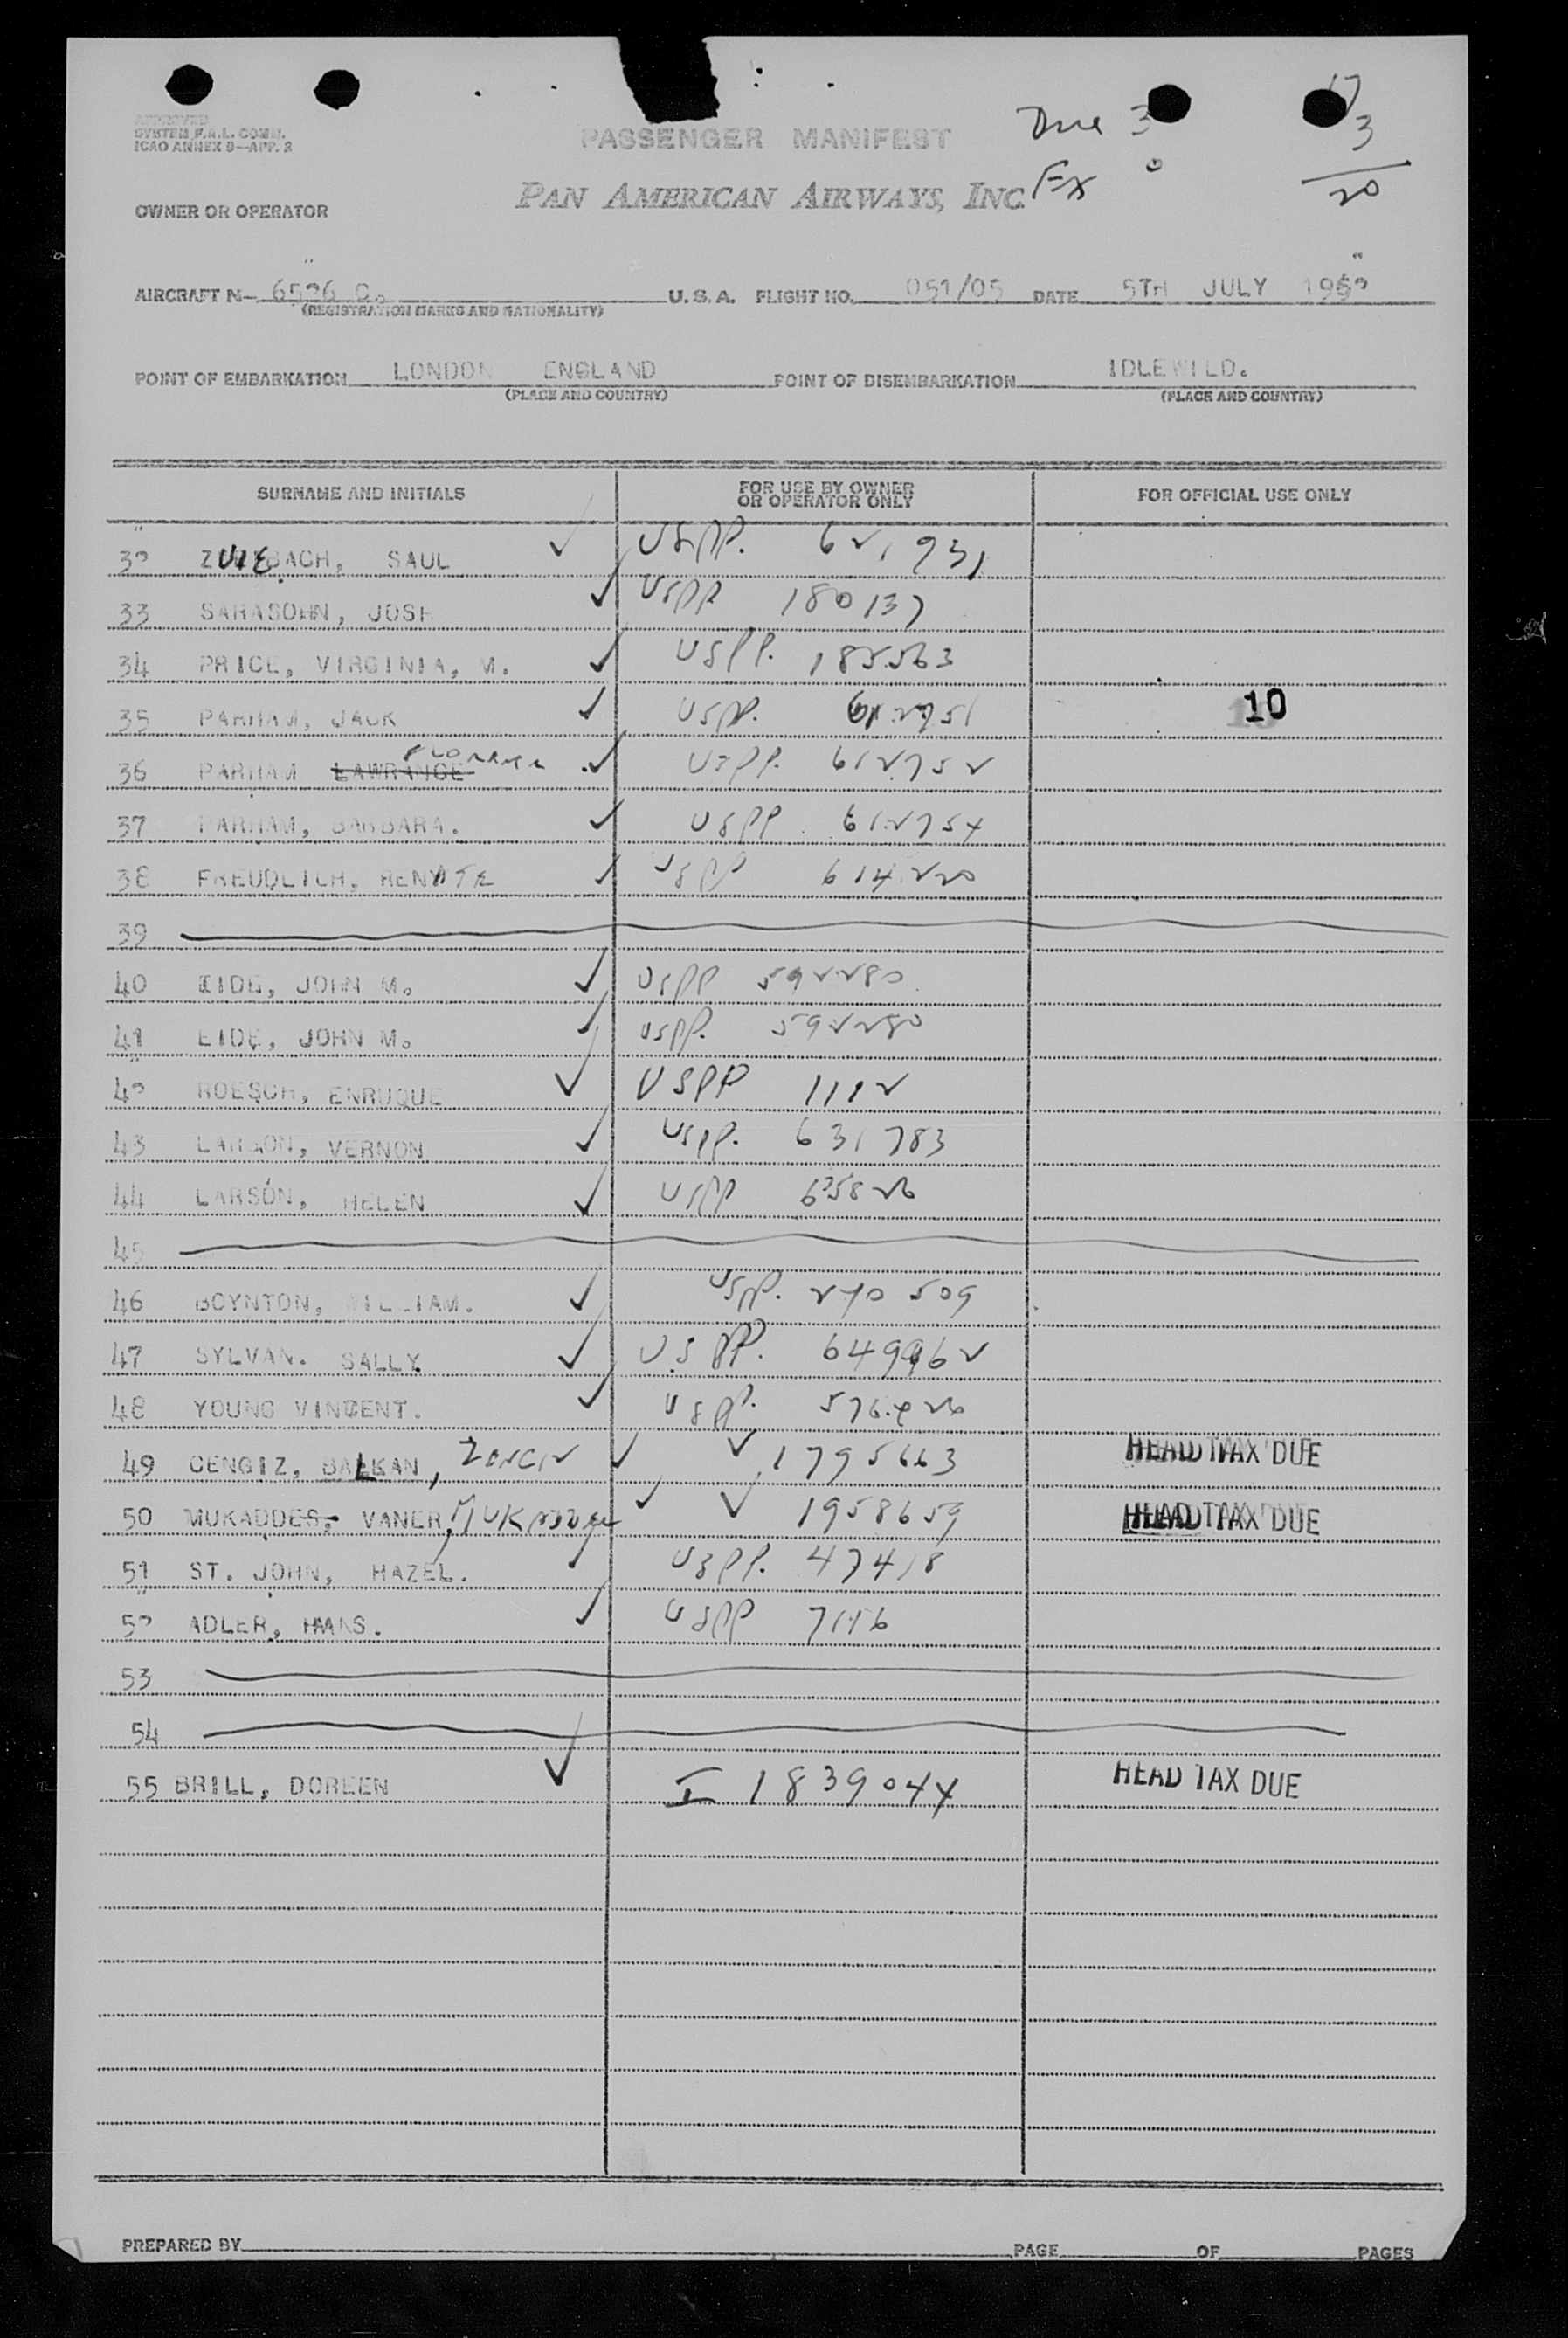 APPROVED
SYSTEM F.A.L. COMM.
ICAO ANNEX 9—APP. 2
PASSENGER MANIFEST
Due 3
17
3
20
Ex 0
PAN AMERICAN AIRWAYS, INC.
OWNER OR OPERATOR
AIRCRAFT N— U.S.A. FLIGHT NO. 051/05 DATE 5TH JULY
(REGISTRATION MARKS AND NATIONALITY)
POINT OF EMBARKATION LONDON ENGLAND POINT OF DISEMBARKATION IDLEWILD.
(PLACE AND COUNTRY) (PLACE AND COUNTRY)
SURNAME AND INITIALS FOR USE BY OWNER OR OPERATOR ONLY FOR OFFICIAL USE ONLY
SAUL ✓ USPP. 621931
33 SARASOHN, JOSE ✓ USPP 180137
34 PRICE, VIRGINIA, M. ✓ USPP. 185563
35 PARHAM, JACK ✓ USPP. 10
36 PARHAM LAWRANCE ✓ USPP. 612752
37 PARHAM, BARBARA. ✓ USPP 612754
38 FREUDLICH, RENATE ✓ USPP 614220
39
40 EIDE, JOHN M. ✓ USPP 592280
41 EIDE, JOHN M. ✓ USPP. 592280
ROESCH, ENRUQUE ✓ USPP 1112
43 LARSON, VERNON ✓ USPP. 631783
44 LARSON, HELEN ✓ USPP
45
46 BOYNTON, WILLIAM. ✓ USPP. 240509
47 SYLVAN. SALLY ✓ U.S PP. 649962
48 YOUNG VINCENT. ✓ USPP.
49 CENGIZ, BALKAN, ✓ ✓ 1795663 HEAD TAX DUE
50 MUKADDES, VANER, ✓ ✓ 1958659 HEAD TAX DUE
51 ST. JOHN, HAZEL. ✓ USPP. 47418
ADLER, HANS. ✓ USPP 7116
53
54
55 BRILL, DOREEN ✓ I 1839044 HEAD TAX DUE
PREPARED BY PAGE OF PAGES